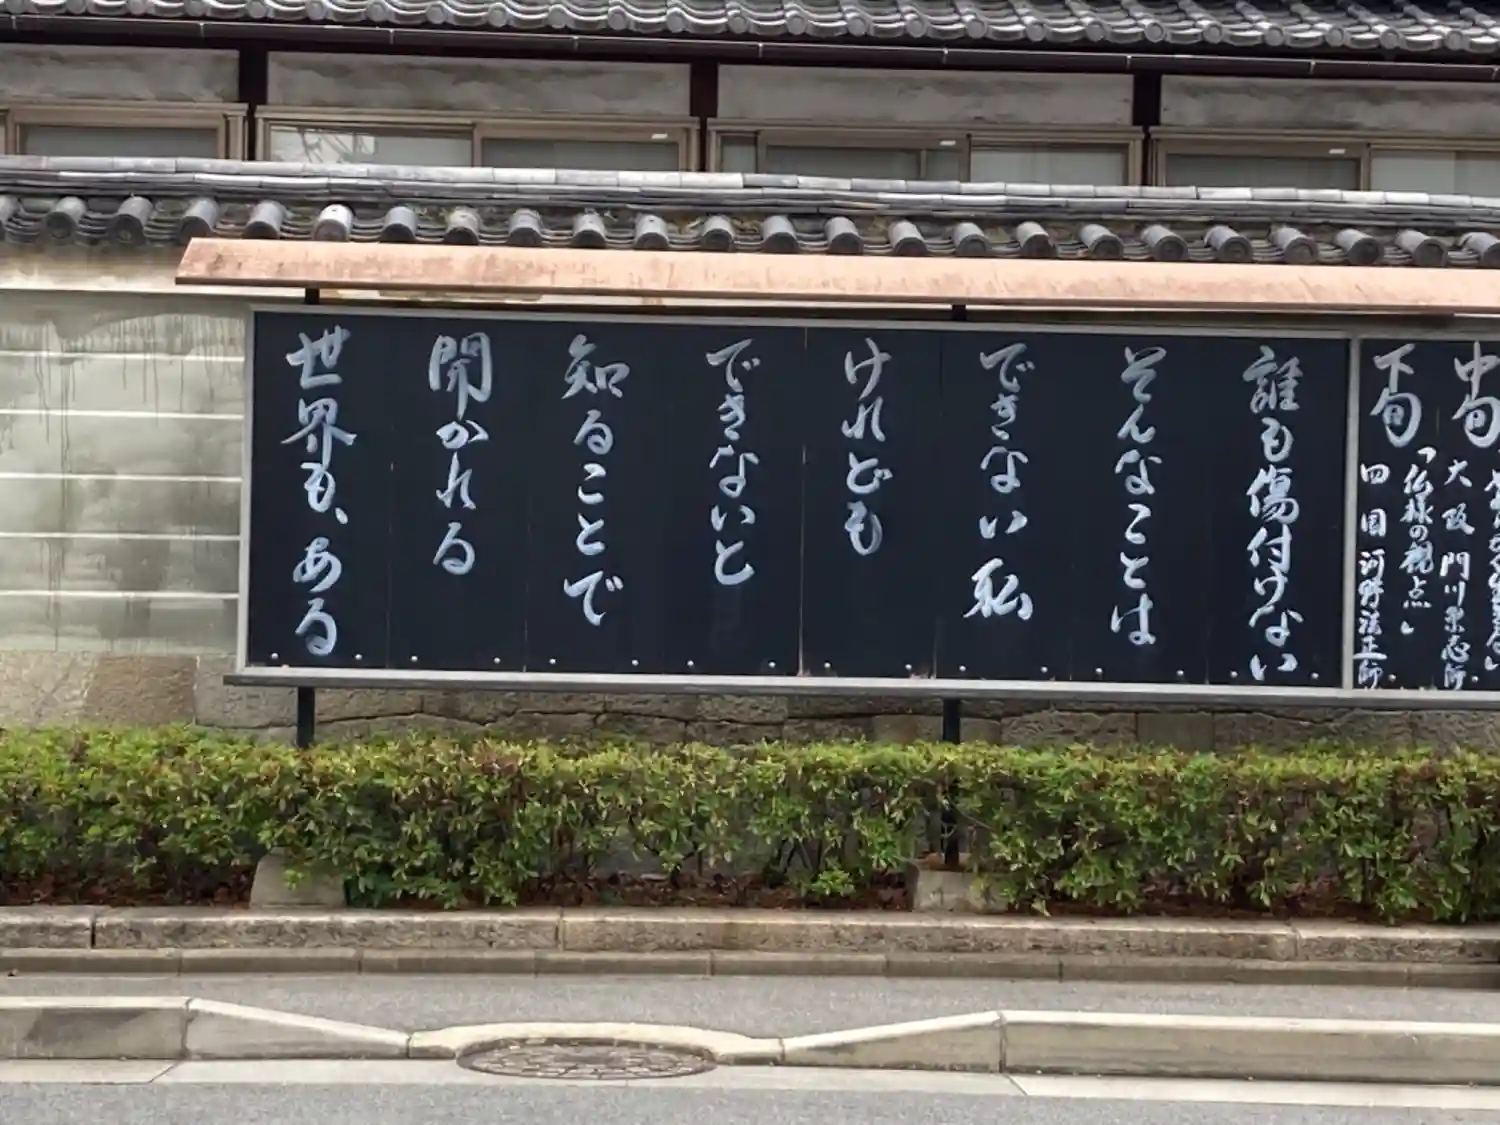 中旬
大阪 門川
下旬
「仏様の観点」
四国 河野法正師
誰も傷付けない
そんなことは
できない私
けれども
できないと
知ることで
開かれる
世界も、ある